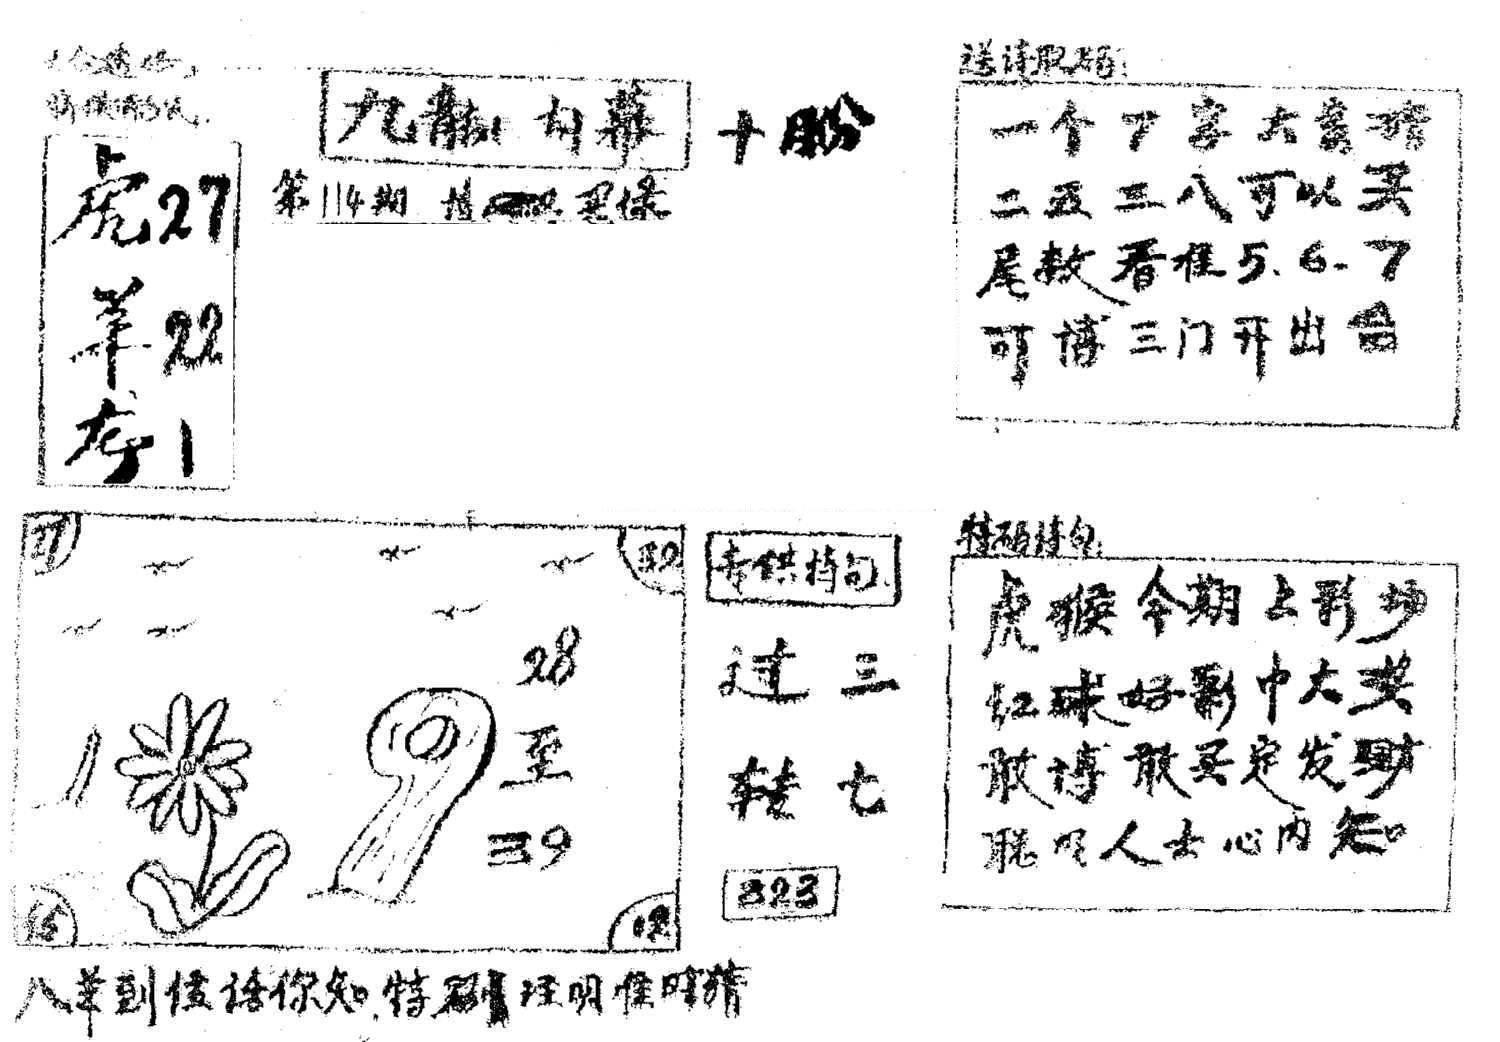 九龍内幕
十股
第114期
虎27
羊22
1
送诗取码:
一个丁字大家猜
二五三八可以买
尾数看准5.6.7
可博三门开出
27
28
至
39
12
专供特句
过三
转七
323
特码诗句:
虎猴今期上彩场
红球好彩中大奖
敢博敢买定发财
聪明人士心内知
八羊到位话你知.特